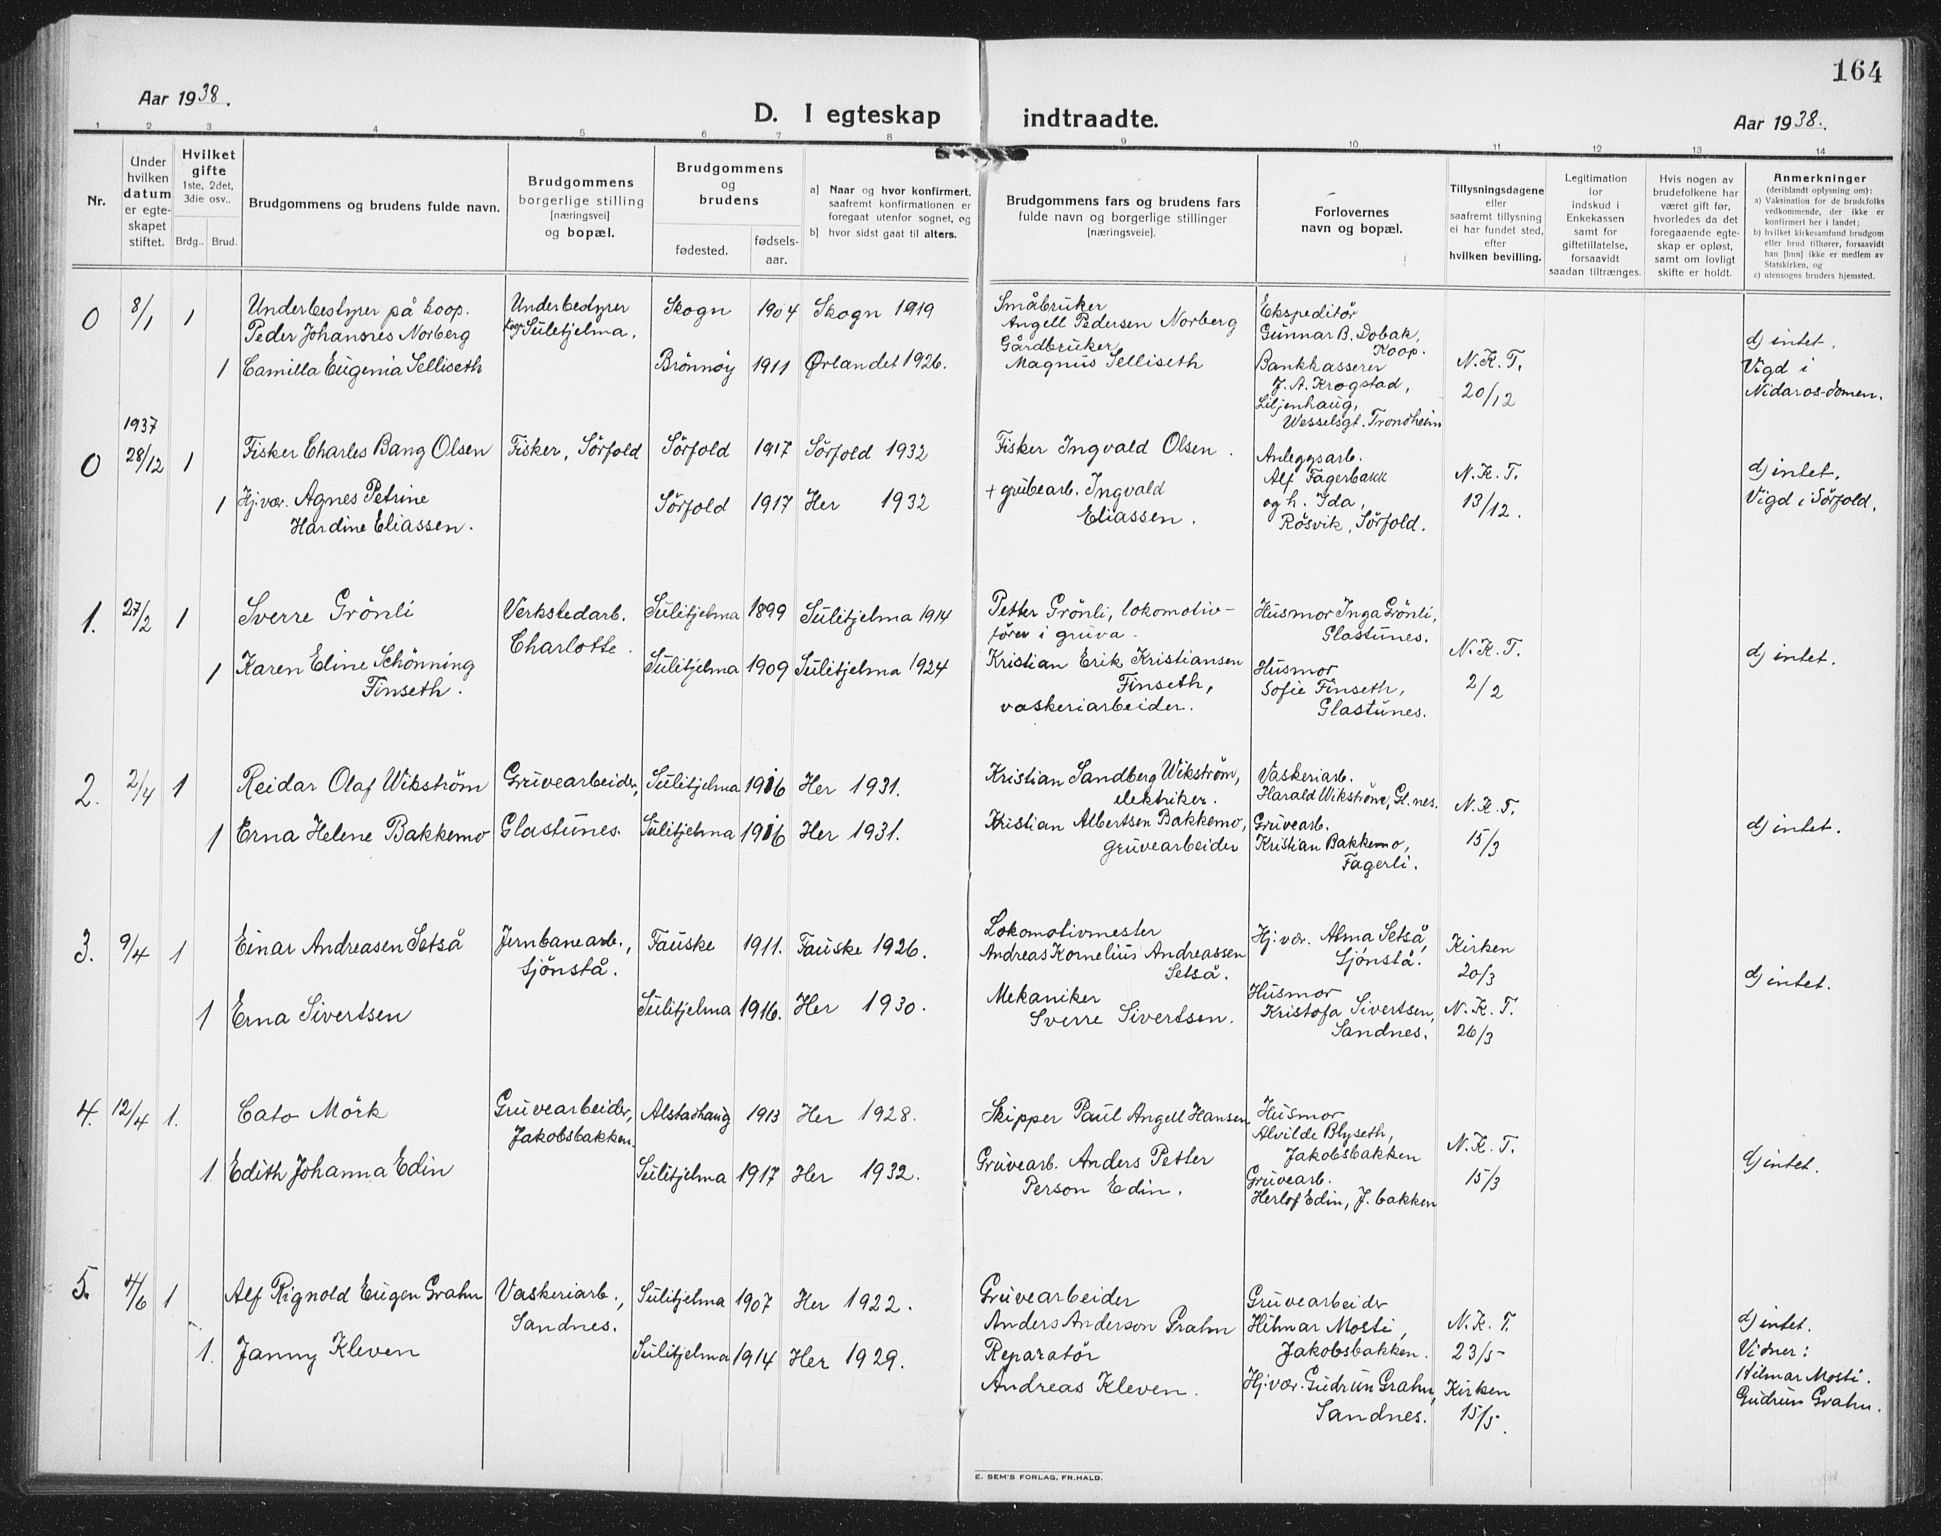 164
Aar 1938.
D. I egteskap indtraadte.
Aar 1938.
1 2 3 4 5 6 7 8 9 10 11 12 13 14
Nr.
Under
hvilken
datum
er egte-
skapet
stiftet.
Hvilket
gifte
1ste, 2det,
3die osv..
Brdg.. Brud.
Brudgommens og brudens fulde navn.
Brudgommens
borgerlige stilling
[næringsvei]
og bopæl.
Brudgommens
og
brudens
fødested.
fødsels-
aar.
a] Naar og hvor konfirmert,
saafremt konfirmationen er
foregaat utenfor sognet, og
b] hvor sidst gaat til alters.
Brudgommens fars og brudens fars
fulde navn og borgerlige stillinger
[næringsvei].
Forlovernes
navn og bopæl.
Tillysningsdagene
eller
saafremt tillysning
ei har fundet sted,
efter
hvilken bevilling.
Legitimation
for
indskud i
Enkekassen
samt for
giftetillatelse,
forsaavidt
saadan tiltrænges.
Hvis nogen av
brudefolkene har
været gift før,
hvorledes da det
foregaaende egte-
skap er opløst,
samt om lovligt
skifte er holdt.
Anmerkninger
(deriblandt oplysning om):
a) Vaksination for de brudefolks
vedkommende, der ikke er
konfirmert her i landet;
b) hvilket kirkesamfund brudgom
eller brud tilhører, forsaavidt
han [hun] ikke er medlem av
Statskirken, og
c) utensogns bruders hjemsted.
0 8/1 1
Underbestyrer på koop.
Peder Johannes Norberg
Underbestyrer
koop Sulitjelma.
Skogn 1904 Skogn 1919
Småbruker
Angell Pedersen Norberg
Ekspeditör
Gunnar B. Dobak,
Koop.
1 Camilla Eugenia Selliseth
Brönnöy 1911 Ørlandet 1926.
Gårdbruker
Magnus Selliseth
Bankkasserer
J. A. Krogstad,
Liljenhaug,
Wesselsgt. Trondheim
N. K. T.
20/12
d) intet.
Vigd i
Nidaros-domen.
1937
0 28/12 1
Fisker Charles Bang Olsen
Fisker, Sörfold
Sörfold 1917 Sörfold 1932
Fisker Ingvald Olsen.
Anleggsarb.
Alf Fagerbakk
1 Hj.vær. Agnes Petrine
Hardine Eliassen.
Sörfold 1917 Her 1932
+ grubearb. Ingvald
Eliassen.
og h. Ida,
Rösvik, Sörfold.
N. K. T.
13/12.
d) intet.
Vigd i Sörfold.
1. 27/2 1
Sverre Grönli
Verkstedarb.
Charlotte.
Sulitjelma 1899 Sulitjelma 1914
Petter Grönli, lokomotiv-
förer i gruva.
Husmor Inga Grönli,
Glastunes.
1 Karen Eline Schönning
Finseth.
Sulitjelma 1909 Sulitjelma 1924
Kristian Erik Kristiansen
Finseth,
vaskeriarbeider.
Husmor
Sofie Finseth,
Glastunes.
N. K. T.
2/2
d) intet.
2. 2/4 1
Reidar Olaf Wikström
Gruvearbeider,
Glastunes.
Sulitjelma 1916 Her 1931.
Kristian Sandberg Wikström,
elektriker.
Vaskeriarb.
Harald Wikström, Gl.nes.
1 Erna Helene Bakkemo
Sulitjelma 1916 Her 1931.
Kristian Albertsen Bakkemo,
gruvearbeider
Gruvearb.
Kristian Bakkemo,
Fagerli.
N. K. T.
15/3
d) intet.
3. 9/4 1
Einar Andreasen Setså
Jernbanearb.,
Sjönstå.
Fauske 1911. Fauske 1926.
Lokomotivmester
Andreas Kornelius Andreassen
Setså.
Hj.vær. Alma Setså,
Sjönstå.
Kirken
20/3
1 Erna Sivertsen
Sulitjelma 1916. Her 1930.
Mekaniker
Sverre Sivertsen.
Husmor
Kristofa Sivertsen,
Sandnes.
N. K. T.
26/3
d) intet.
4. 12/4 1.
Cato Mörk
Gruvearbeider,
Jakobsbakken.
Alstadhaug 1913 Her 1928.
Skipper Paul Angell Hansen
Husmor
Alvilde Blyseth,
Jakobsbakken
1 Edith Johanna Edin
Sulitjelma 1917 Her 1932.
Gruvearb. Anders Petter
Person Edin.
Gruvearb.
Herlof Edin, J. bakken
N. K. T.
15/3
d) intet.
5. 4/6 1
Alf Rignold Eugen Grahn
Vaskeriarb.,
Sandnes.
Sulitjelma 1907 Her 1922.
Gruvearbeider
Anders Anderson Grahn
Gruvearbeider
Hilmar Mosti,
Jakobsbakken.
N. K. T.
23/5
1. Janny Kleven
Sulitjelma 1914 Her 1929.
Reparatör
Andreas Kleven.
Hj.vær. Gudrun Grahn,
Sandnes.
Kirken
15/5.
d) intet.
Vidner:
Hilmar Mosti.
Gudrun Grahn.
E. SEM'S FORLAG, FR.HALD.